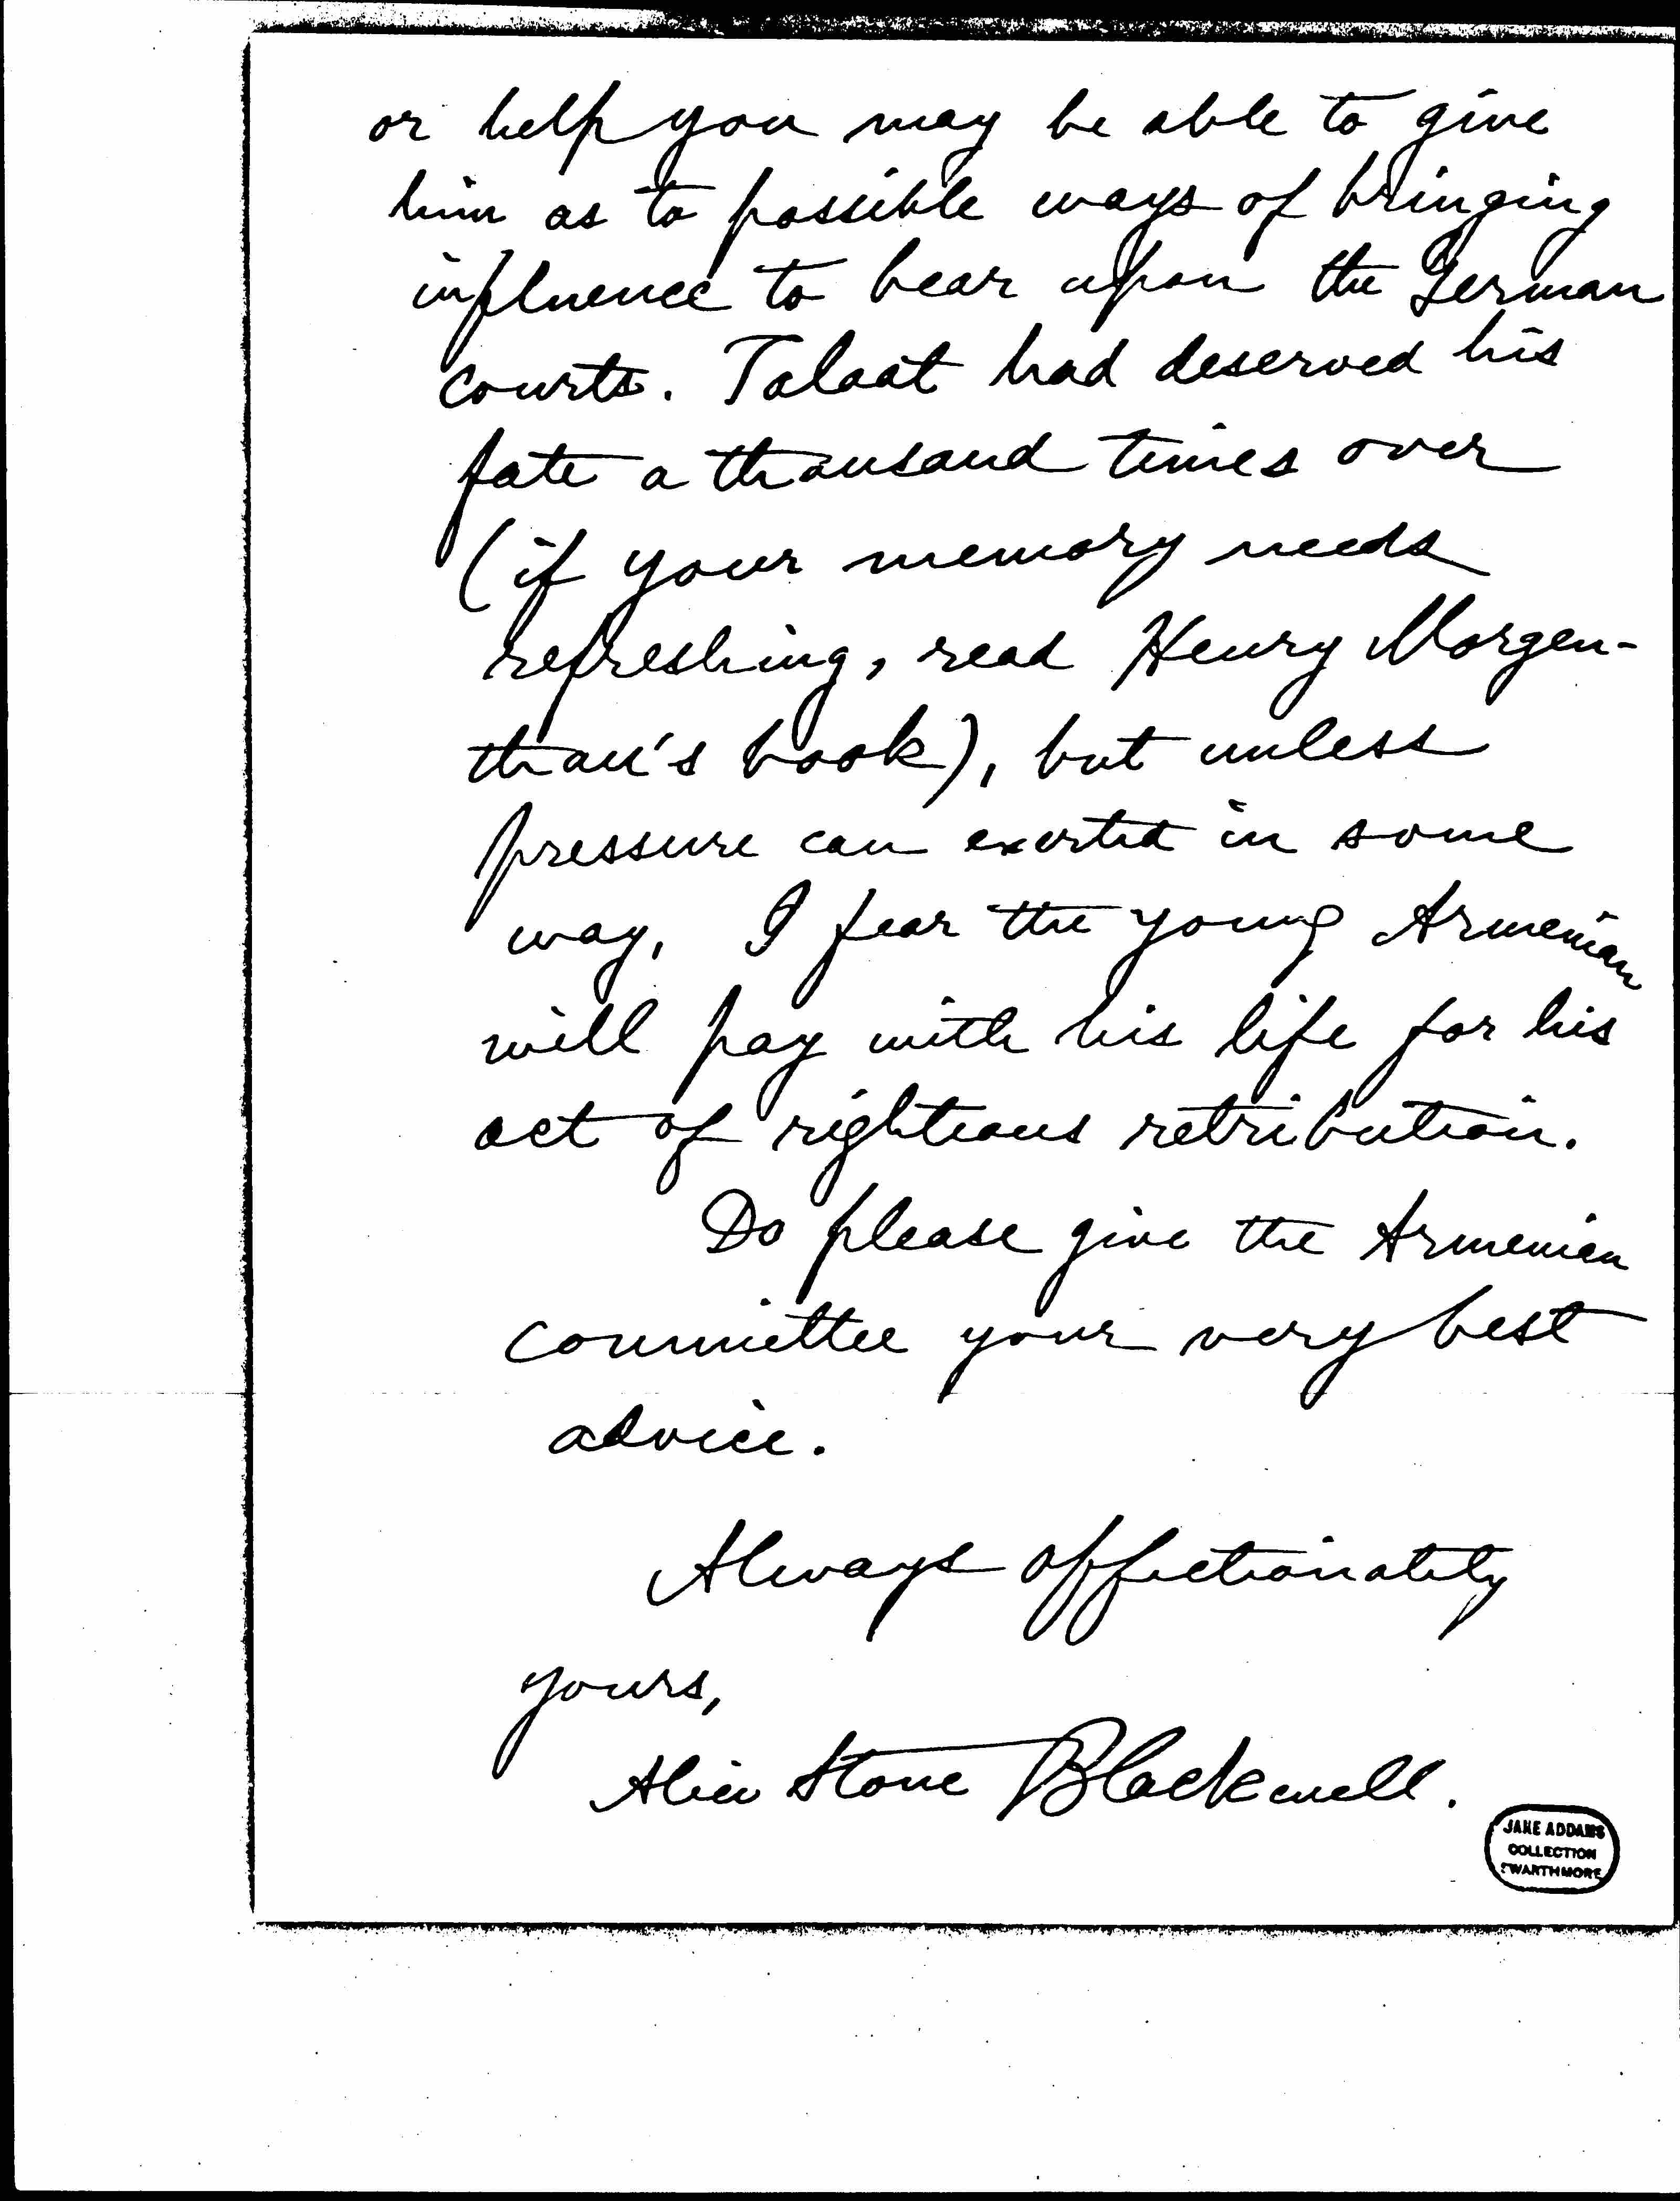 or help you may be able to give
him as to possible ways of bringing
influence to bear upon the German
courts. Talaat had deserved his
fate a thousand times over
(if your memory needs
refreshing, read Henry Morgen-
thau's book), but unless
pressure can exerted in some
way, I fear the young Armenian
will pay with his life for his
act of righteous retribution.
Do please give the Armenian
committee your very best
advice.
Always affectionately
yours,
Alice Stone Blackwell.
JANE ADDAMS
COLLECTION
SWARTHMORE